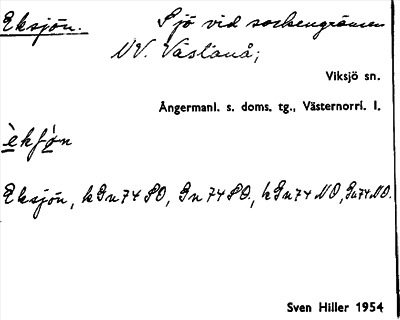 Eksjön. Sjö vid sockengränsen
NV. Västanå;
Viksjö sn.
Ångermanl. s. doms. tg., Västernorrl. l.
èkʃòn
Eksjön, kGn74SO, Gn74SO., kGn74NO, Gn74NO.
Sven Hiller 1954